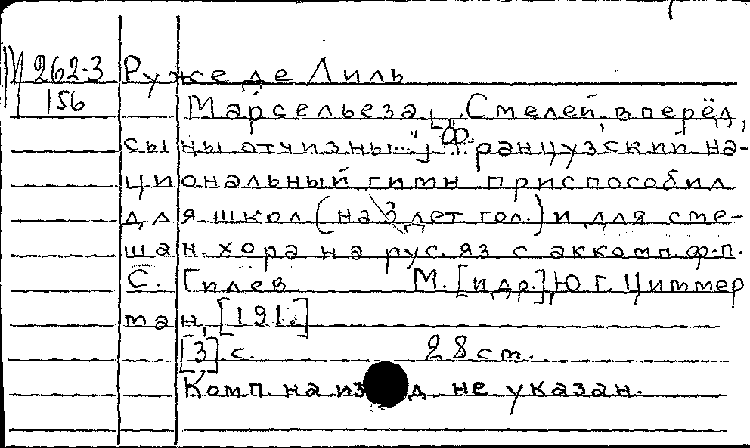 М 262-3 Руже де Лиль
156 Марсельеза. „Смелей, вперёд,
сыны отчизны..." Французский на-
циональный гимн приспособил
для школ (на 3 дет гол.) и для сме-
шан. хора на рус. яз с аккомп. ф.-п.
С. Гилев М. [и др.], Ю. Г. Циммер
ман, [191.]
[3] с. 28 см.
Комп. на изд не указан.